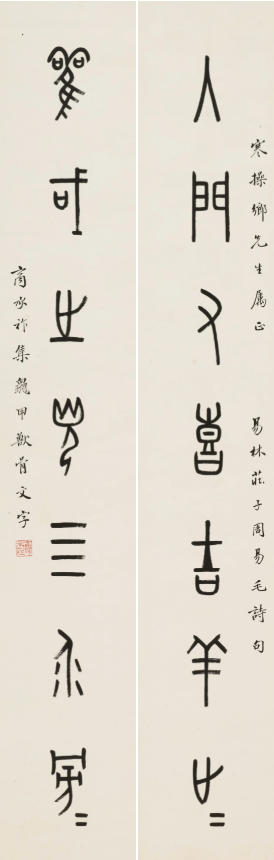 寒操鄉先生屬正　易林莊子周易毛詩句
入門又喜吉羊止=
雚或之光四介旁=
商承祚集龜甲獸骨文字